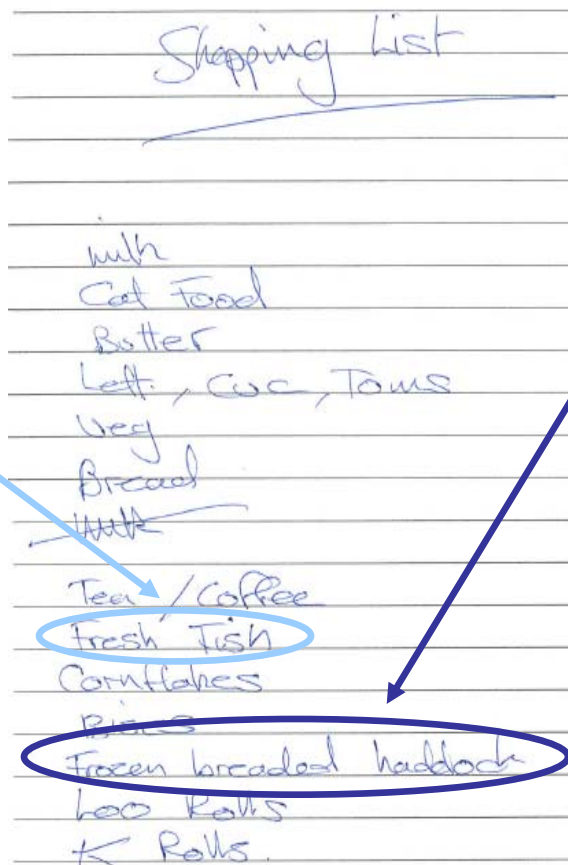 Shopping List
milk
Cat Food
Butter
Lett., Cuc, Toms
Veg
Bread
milk
Tea / Coffee
Fresh Fish
Cornflakes
Biscs
Frozen breaded haddock
Loo Rolls
K Rolls.